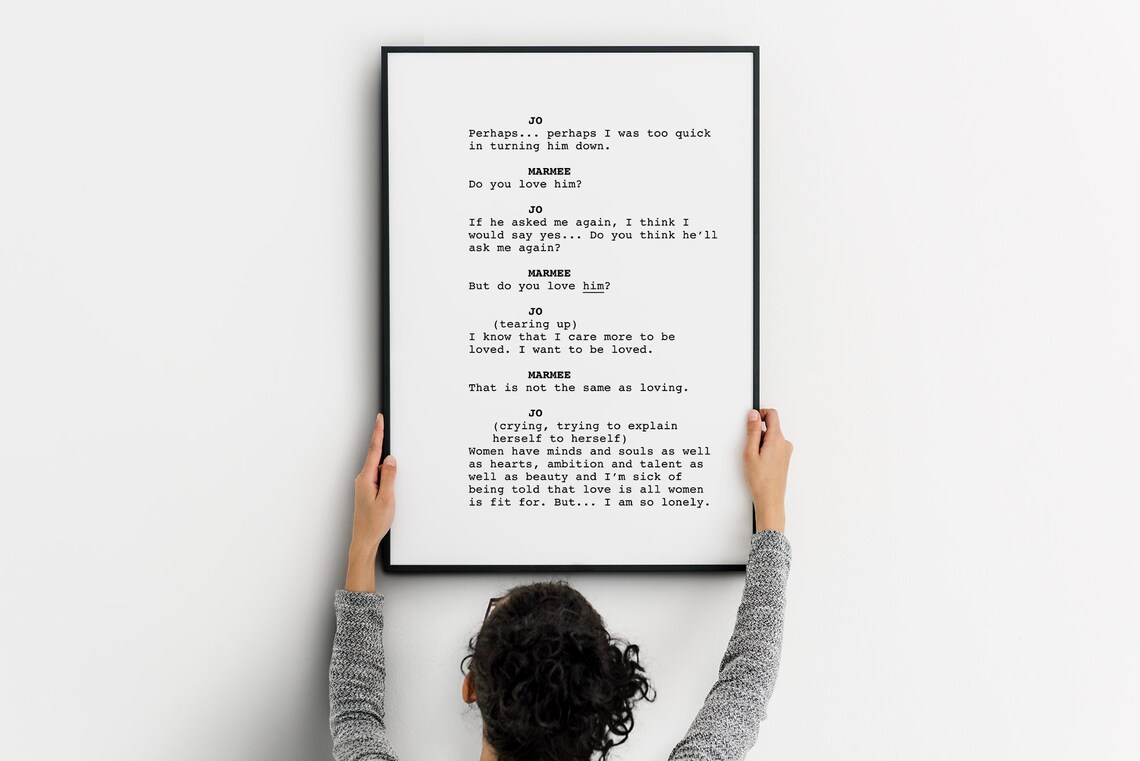 JO
Perhaps... perhaps I was too quick
in turning him down.
MARMEE
Do you love him?
JO
If he asked me again, I think I
would say yes... Do you think he’ll
ask me again?
MARMEE
But do you love him?
JO
(tearing up)
I know that I care more to be
loved. I want to be loved.
MARMEE
That is not the same as loving.
JO
(crying, trying to explain
herself to herself)
Women have minds and souls as well
as hearts, ambition and talent as
well as beauty and I’m sick of
being told that love is all women
is fit for. But... I am so lonely.